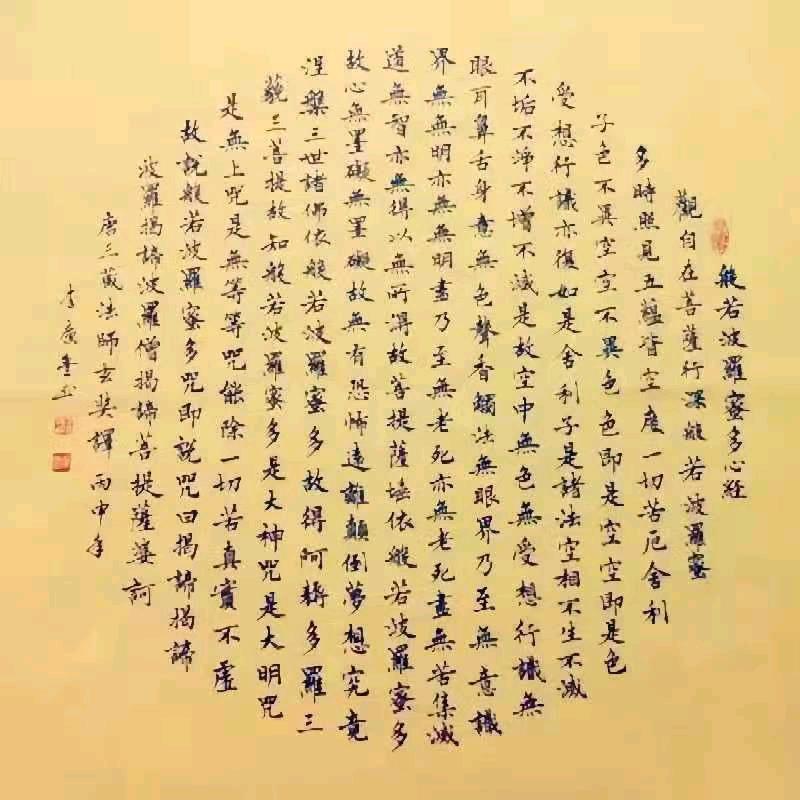 般若波羅蜜多心経
觀自在菩薩行深般若波羅蜜
多時照見五蘊皆空度一切苦厄舍利
子色不異空空不異色色即是空空即是色
受想行識亦復如是舍利子是諸法空相不生不滅
不垢不淨不增不減是故空中無色無受想行識無
眼耳鼻舌身意無色聲香觸法無眼界乃至無意識
界無無明亦無無明盡乃至無老死亦無老死盡無苦集滅
道無智亦無得以無所得故菩提薩埵依般若波羅蜜多
故心無罣礙無罣礙故無有恐怖遠離顛倒夢想究竟
涅槃三世諸佛依般若波羅蜜多故得阿耨多羅三
藐三菩提故知般若波羅蜜多是大神咒是大明咒
是無上咒是無等等咒能除一切苦真實不虛
故說般若波羅蜜多咒即說咒曰揭諦揭諦
波羅揭諦波羅僧揭諦菩提薩婆訶
唐三藏法師玄奘譯丙申年
李廣书